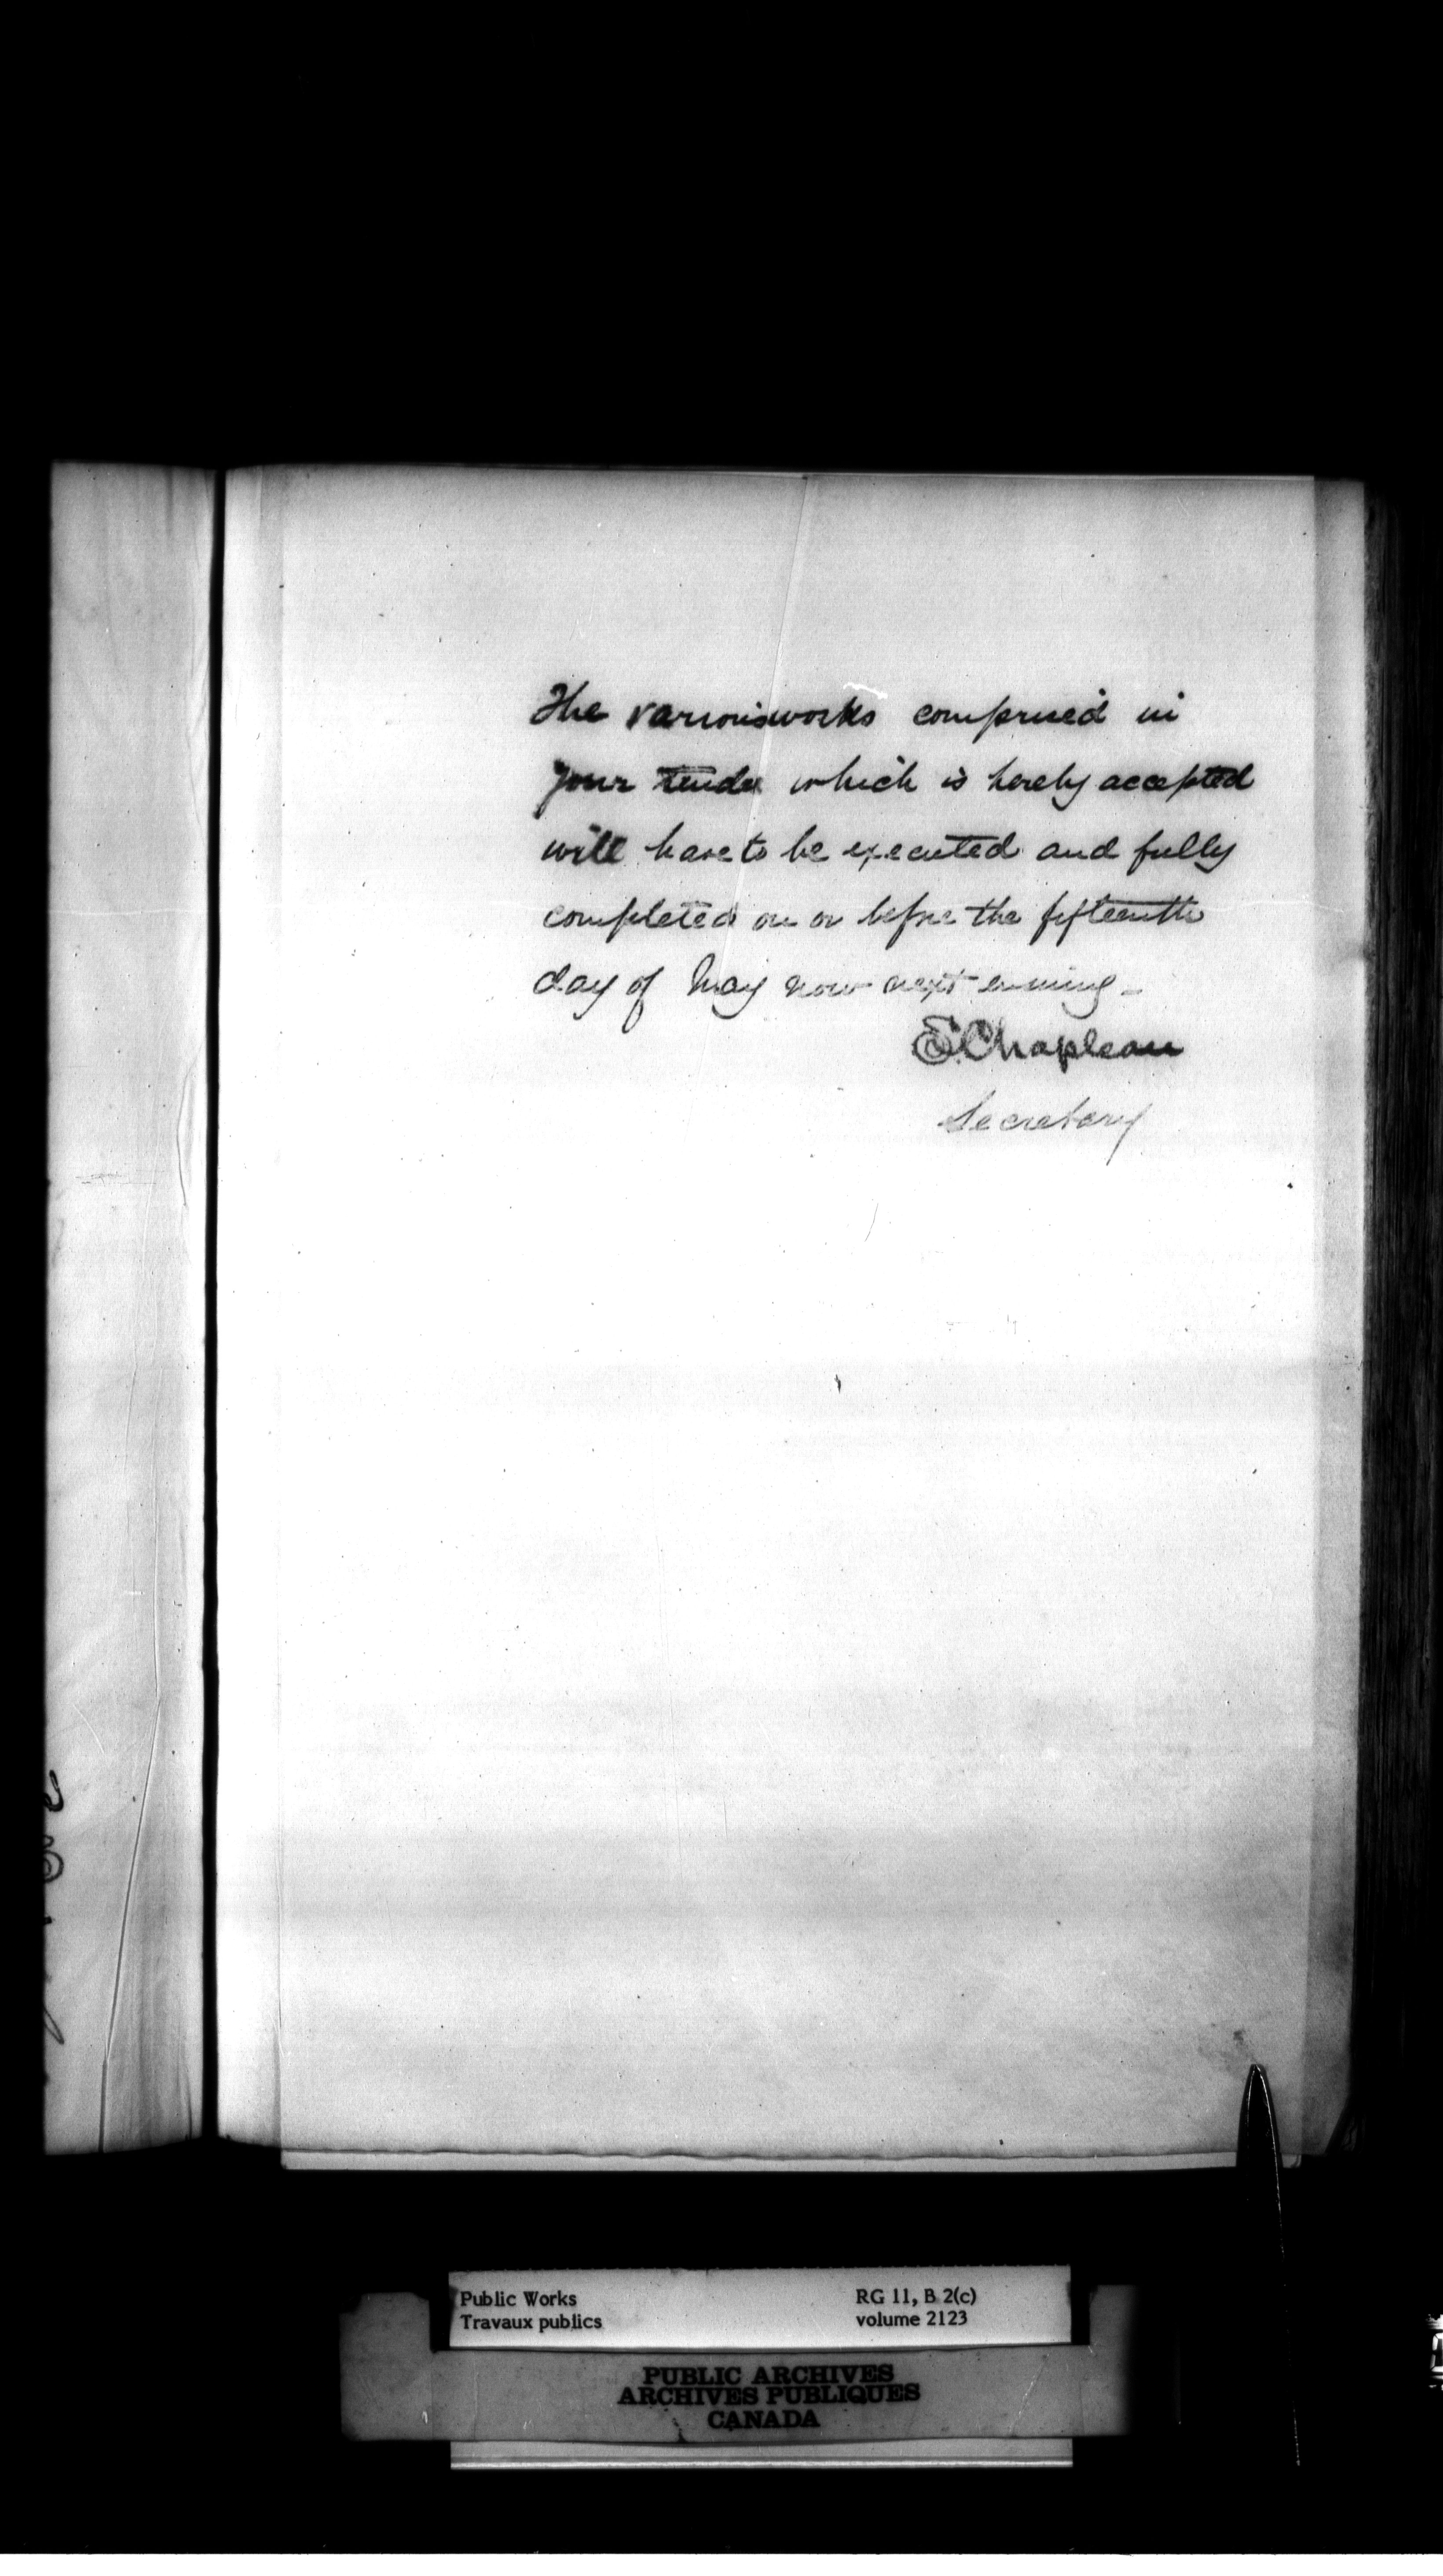 The various works comprised in
your tender which is hereby accepted
will have to be executed and fully
completed on or before the fifteenth
day of May now next ensuing -
E Chapleau
Secretary
Public Works
Travaux publics
RG 11, B 2(c)
volume 2123
PUBLIC ARCHIVES
ARCHIVES PUBLIQUES
CANADA